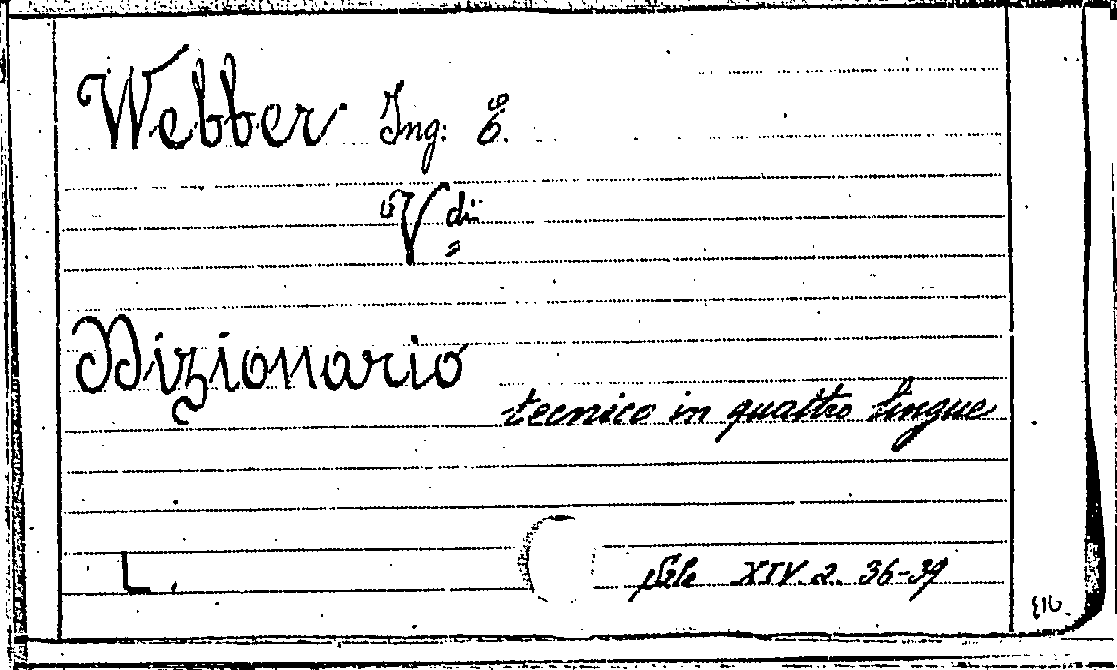 Webber Ing: E.
V di
Dizionario
tecnico in quattro lingue
L.
Sala XIV. 2. 36-39